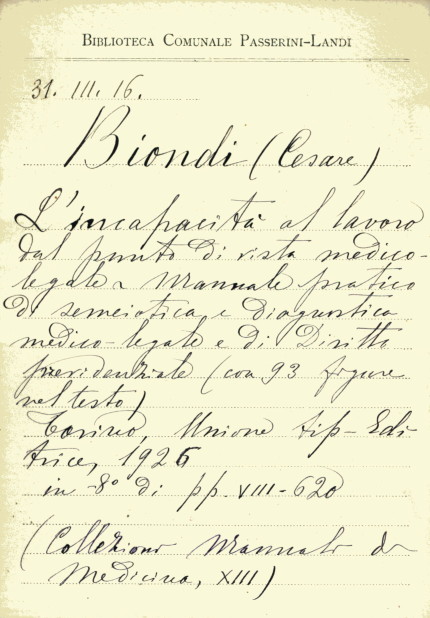 BIBLIOTECA COMUNALE PASSERINI-LANDI
31. III. 16.
Biondi (Cesare)
L'incapacità al lavoro
dal punto di vista medico-
legale - Manuale pratico
di semeiotica e Diagnostica
medico-legale e di Diritto
previdenziale (con 93 figure
nel testo)
Torino, Unione tip-Edi
trice, 1926
in-8° di pp. VIII-620
(Collezione Manuali di
Medicina, XIII)